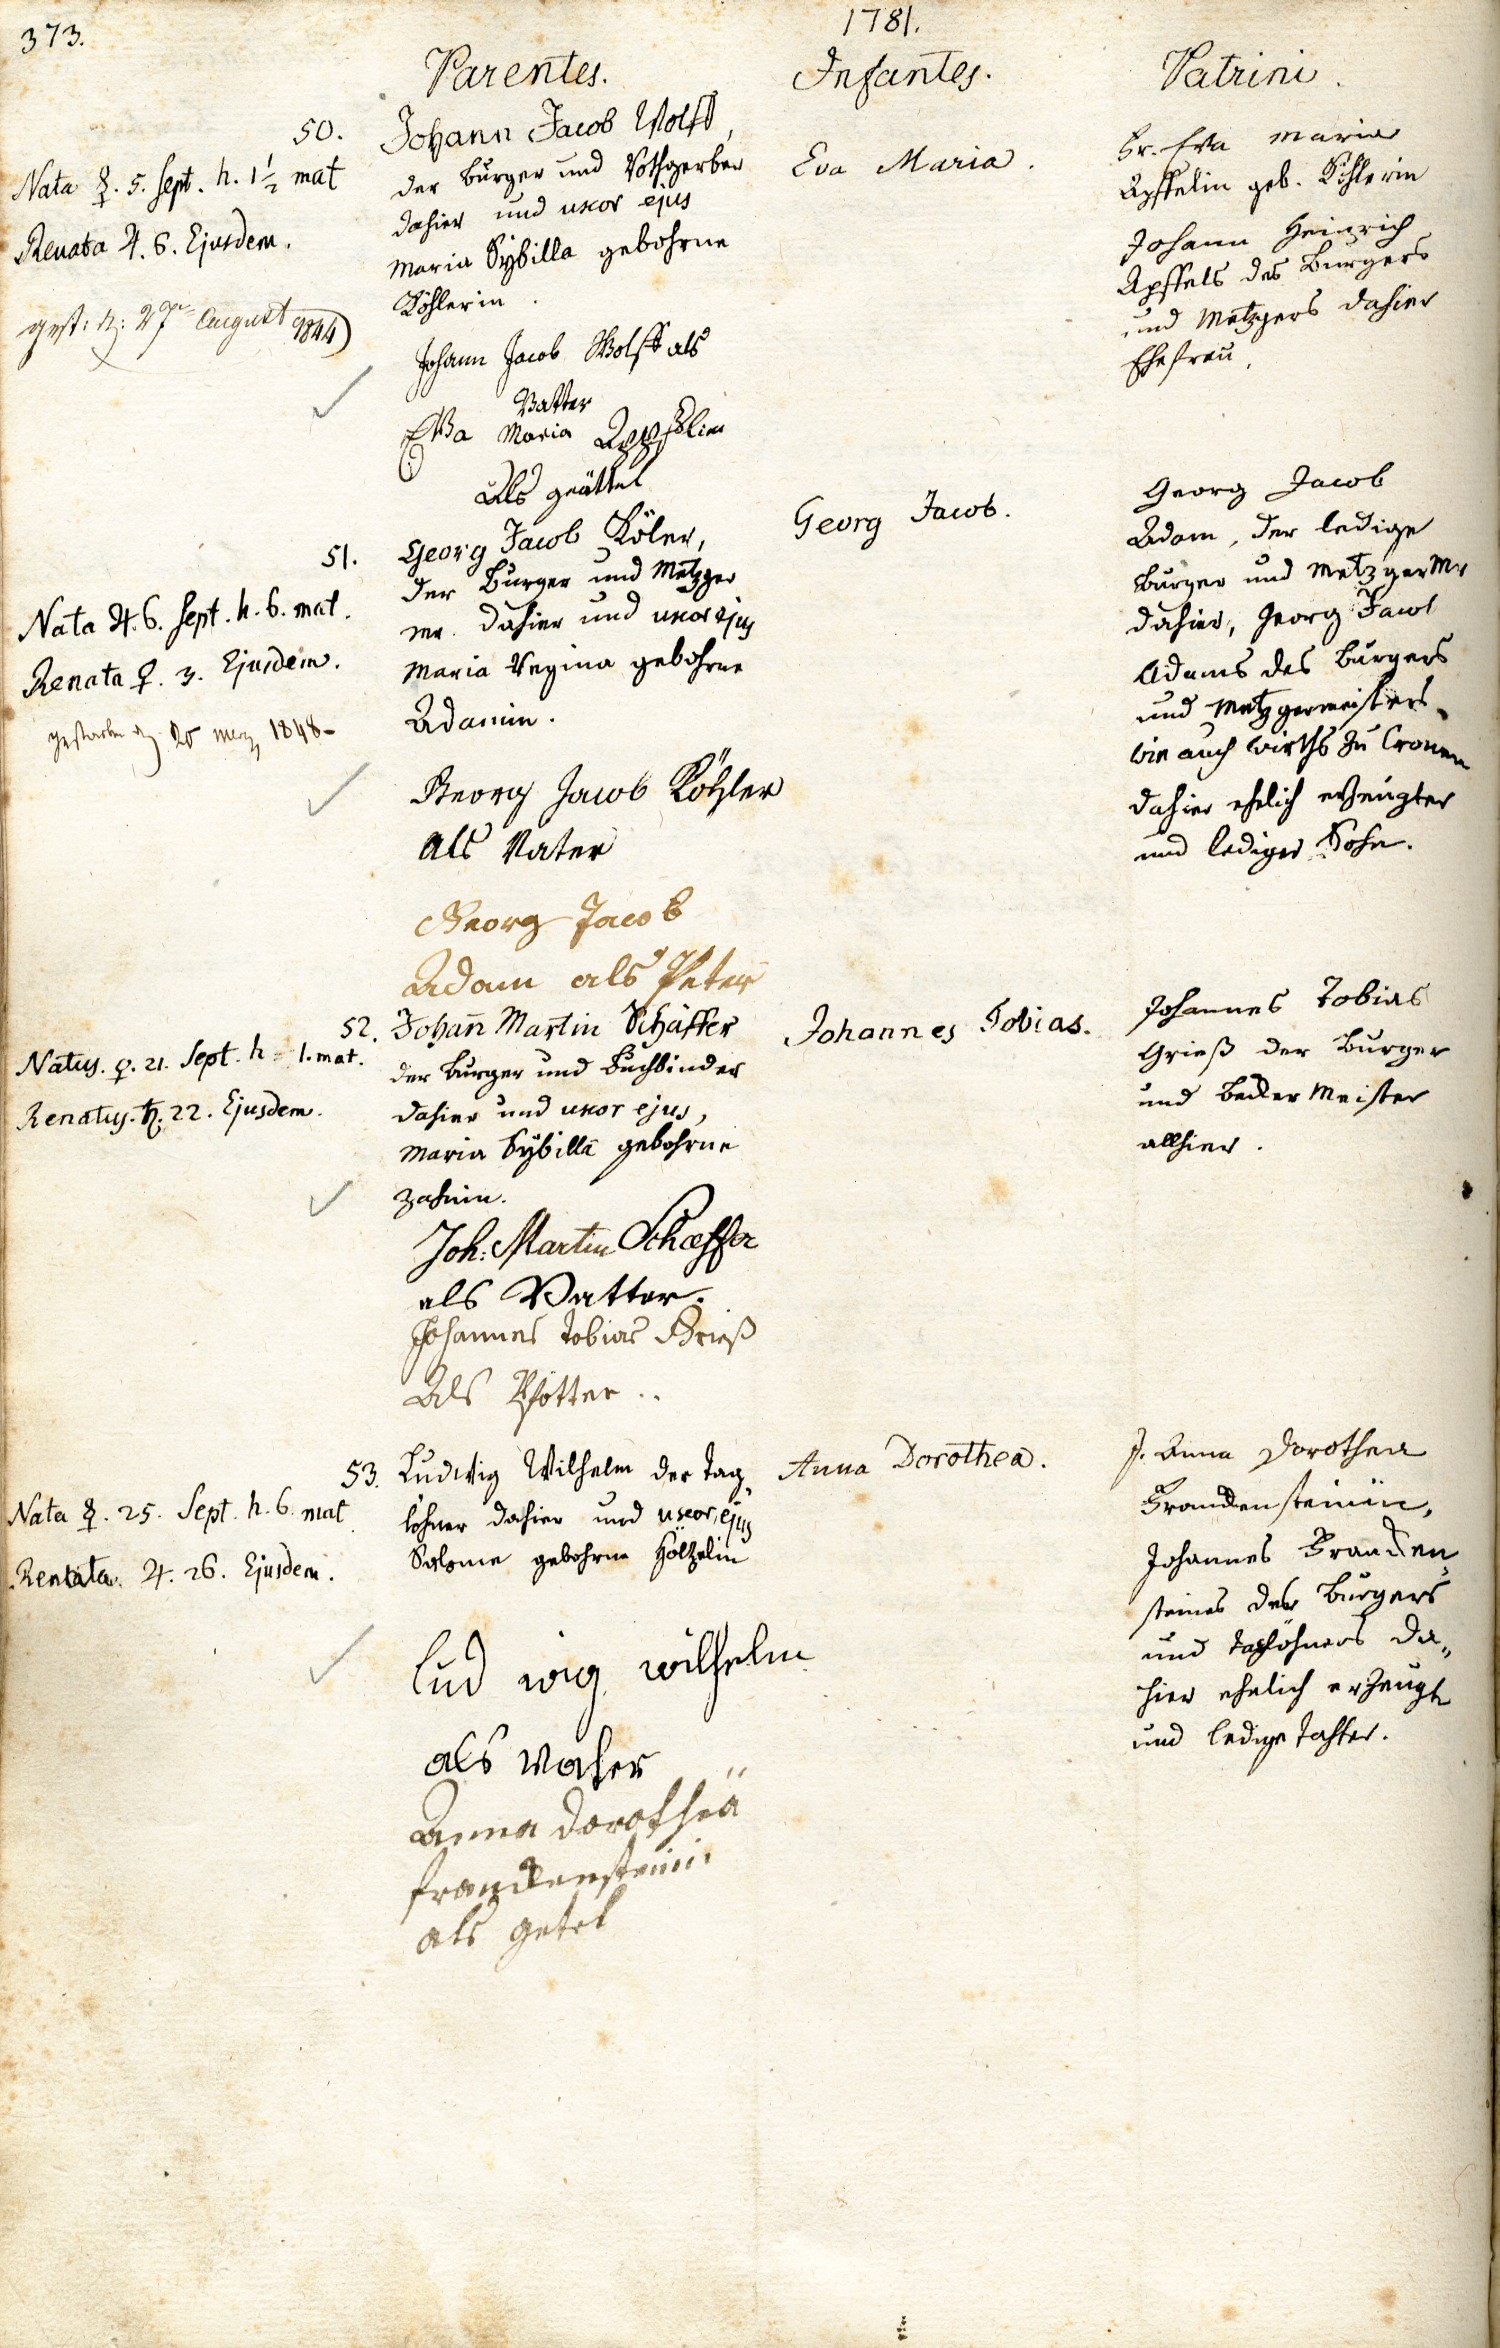 373.
1781.
Parentes.
Infantes.
Patrini.
50.
Nata ☿. 5. Sept. h. 1½ mat
Renata ♃. 6. Ejusdem.
gest: d: 27 August 1844)
Johann Jacob Wolff,
der Burger und Rothgerber
dahier und uxor ejus
Maria Sÿbilla gebohrne
Köhlerin.
Johann Jacob Wolff als
Vatter
Eva Maria Apfflin
Als geättel
Eva Maria.
Fr. Eva Maria
Apffelin geb. Köhlerin
Johann Heinrich
Apffels des Burgers
und Metzgers dahier
Ehefrau.
51.
Nata ♃. 6. Sept. h. 6. mat.
Renata ♀. 7. Ejusdem.
gestorben 25 merz 1848
Georg Jacob Köler,
der Burger und Metzger
mr. dahier und uxor ejus
Maria Regina gebohrne
Adamin.
Georg Jacob Köhler
als Vater
Georg Jacob
Adam als Peter
Georg Jacob.
Georg Jacob
Adam, der ledige
Burger und Metzger Mr
dahier, Georg Jacob
Adams des Burgers
und Metzgermeisters,
wie auch Wirths zu Cronen
dahier ehelich erzeugter
und lediger Sohn.
52.
Natus. ♀. 21. Sept. h. 1. mat.
Renatus. ♄. 22. Ejusdem.
Johann Martin Schäffer
der Burger und Buchbinder
dahier und uxor ejus,
Maria Sÿbilla gebohrne
Zahnin.
Joh: Martin Schæffer
als Vatter.
Johannes Tobias Grieß
Als Pfötter..
Johannes Tobias.
Johannes Tobias
Grieß der Burger
und Becker Meister
allhier.
53.
Nata ☿. 25. Sept. h. 6. mat
Renata. ♃. 26. Ejusdem.
Ludwig Wilhelm der Tag,
löhner dahier und uxor, ejus
Salome gebohrne Höltzelin
lud wig wilhelm
als Vather
Anna Dorotheä
franckensteini.
als getel
Anna Dorothea.
J. Anna Dorothea
Franckensteinin,
Johannes Francken,
steines des Burgers
und Taglöhners da,,
hier ehelich erzeugte
und ledige Tochter.